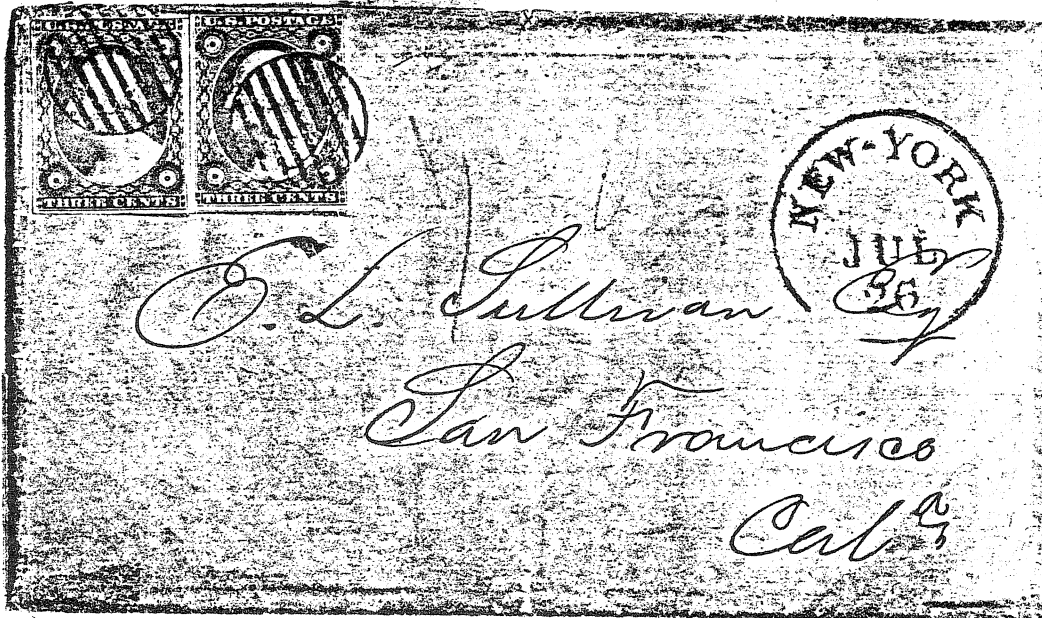 U.S. POSTAGE
THREE CENTS
THREE CENTS
NEW-YORK
JUL
E. L. Sullivan Esq
San Francisco
Cala